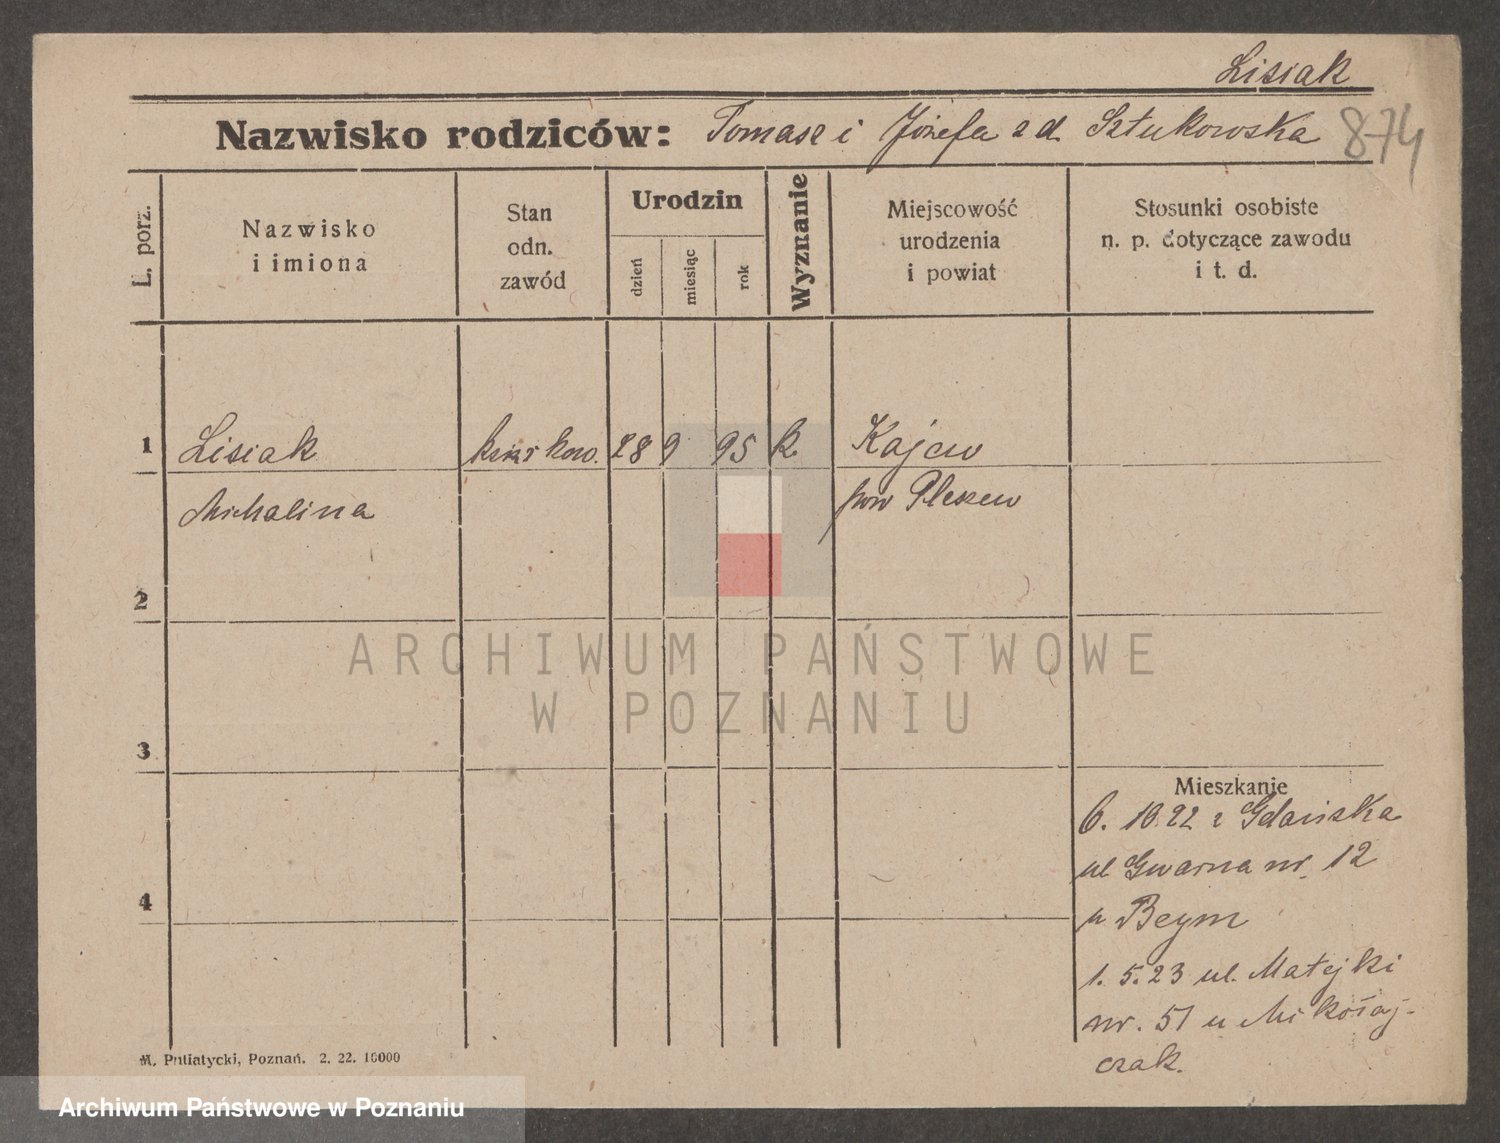 Lisiak
Nazwisko rodziców: Tomasz i Józefa z d. Sztukowska 874
L. porz.
Nazwisko
i imiona
Stan
odn.
zawód
Urodzin
dzień
miesiąc
rok
Wyznanie
Miejscowość
urodzenia
i powiat
Stosunki osobiste
n. p. dotyczące zawodu
i t. d.
1 Lisiak 28 9 95 k. Kajew
Michalina pow Pleszew
2
3
Mieszkanie
6. 10.22 z Gdańska
ul Gwarna nr. 12
4
u Beym
1. 5.23 ul. Matejki
nr. 51 u Mikołaj-
czak.
M. Putiatycki, Poznań. 2. 22. 10000
ARCHIWUM PAŃSTWOWE
W POZNANIU
Archiwum Państwowe w Poznaniu